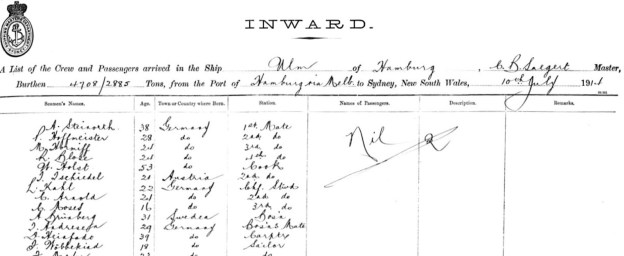 INWARD.
A List of the Crew and Passengers arrived in the Ship Ulm of Hamburg, C. B. Saegert Master,
Burthen 4708/2885 Tons, from the Port of Hamburg via Melb. to Sydney, New South Wales, 10th July 1911
Seamen's Names. Age. Town or Country where Born. Station. Names of Passengers. Description. Remarks.
A. Steinorth 38 Germany 1st Mate Nil
Hoffmeister 28 do 2nd do
M. 24 do 3rd do
K. Blose 24 do 4th do
W. Holst 53 do Cook
J. Tschiedel 21 Austria 2nd do
L. Kahl 22 Germany Chf. Stwd
C. Arnold 21 do 2nd do
C. Moses 16 do 3rd do
A. Grünberg 31 Sweden Bosn
J. Andresen 29 Germany Bosns Mate
39 do Carptr
J. 19 do Sailor